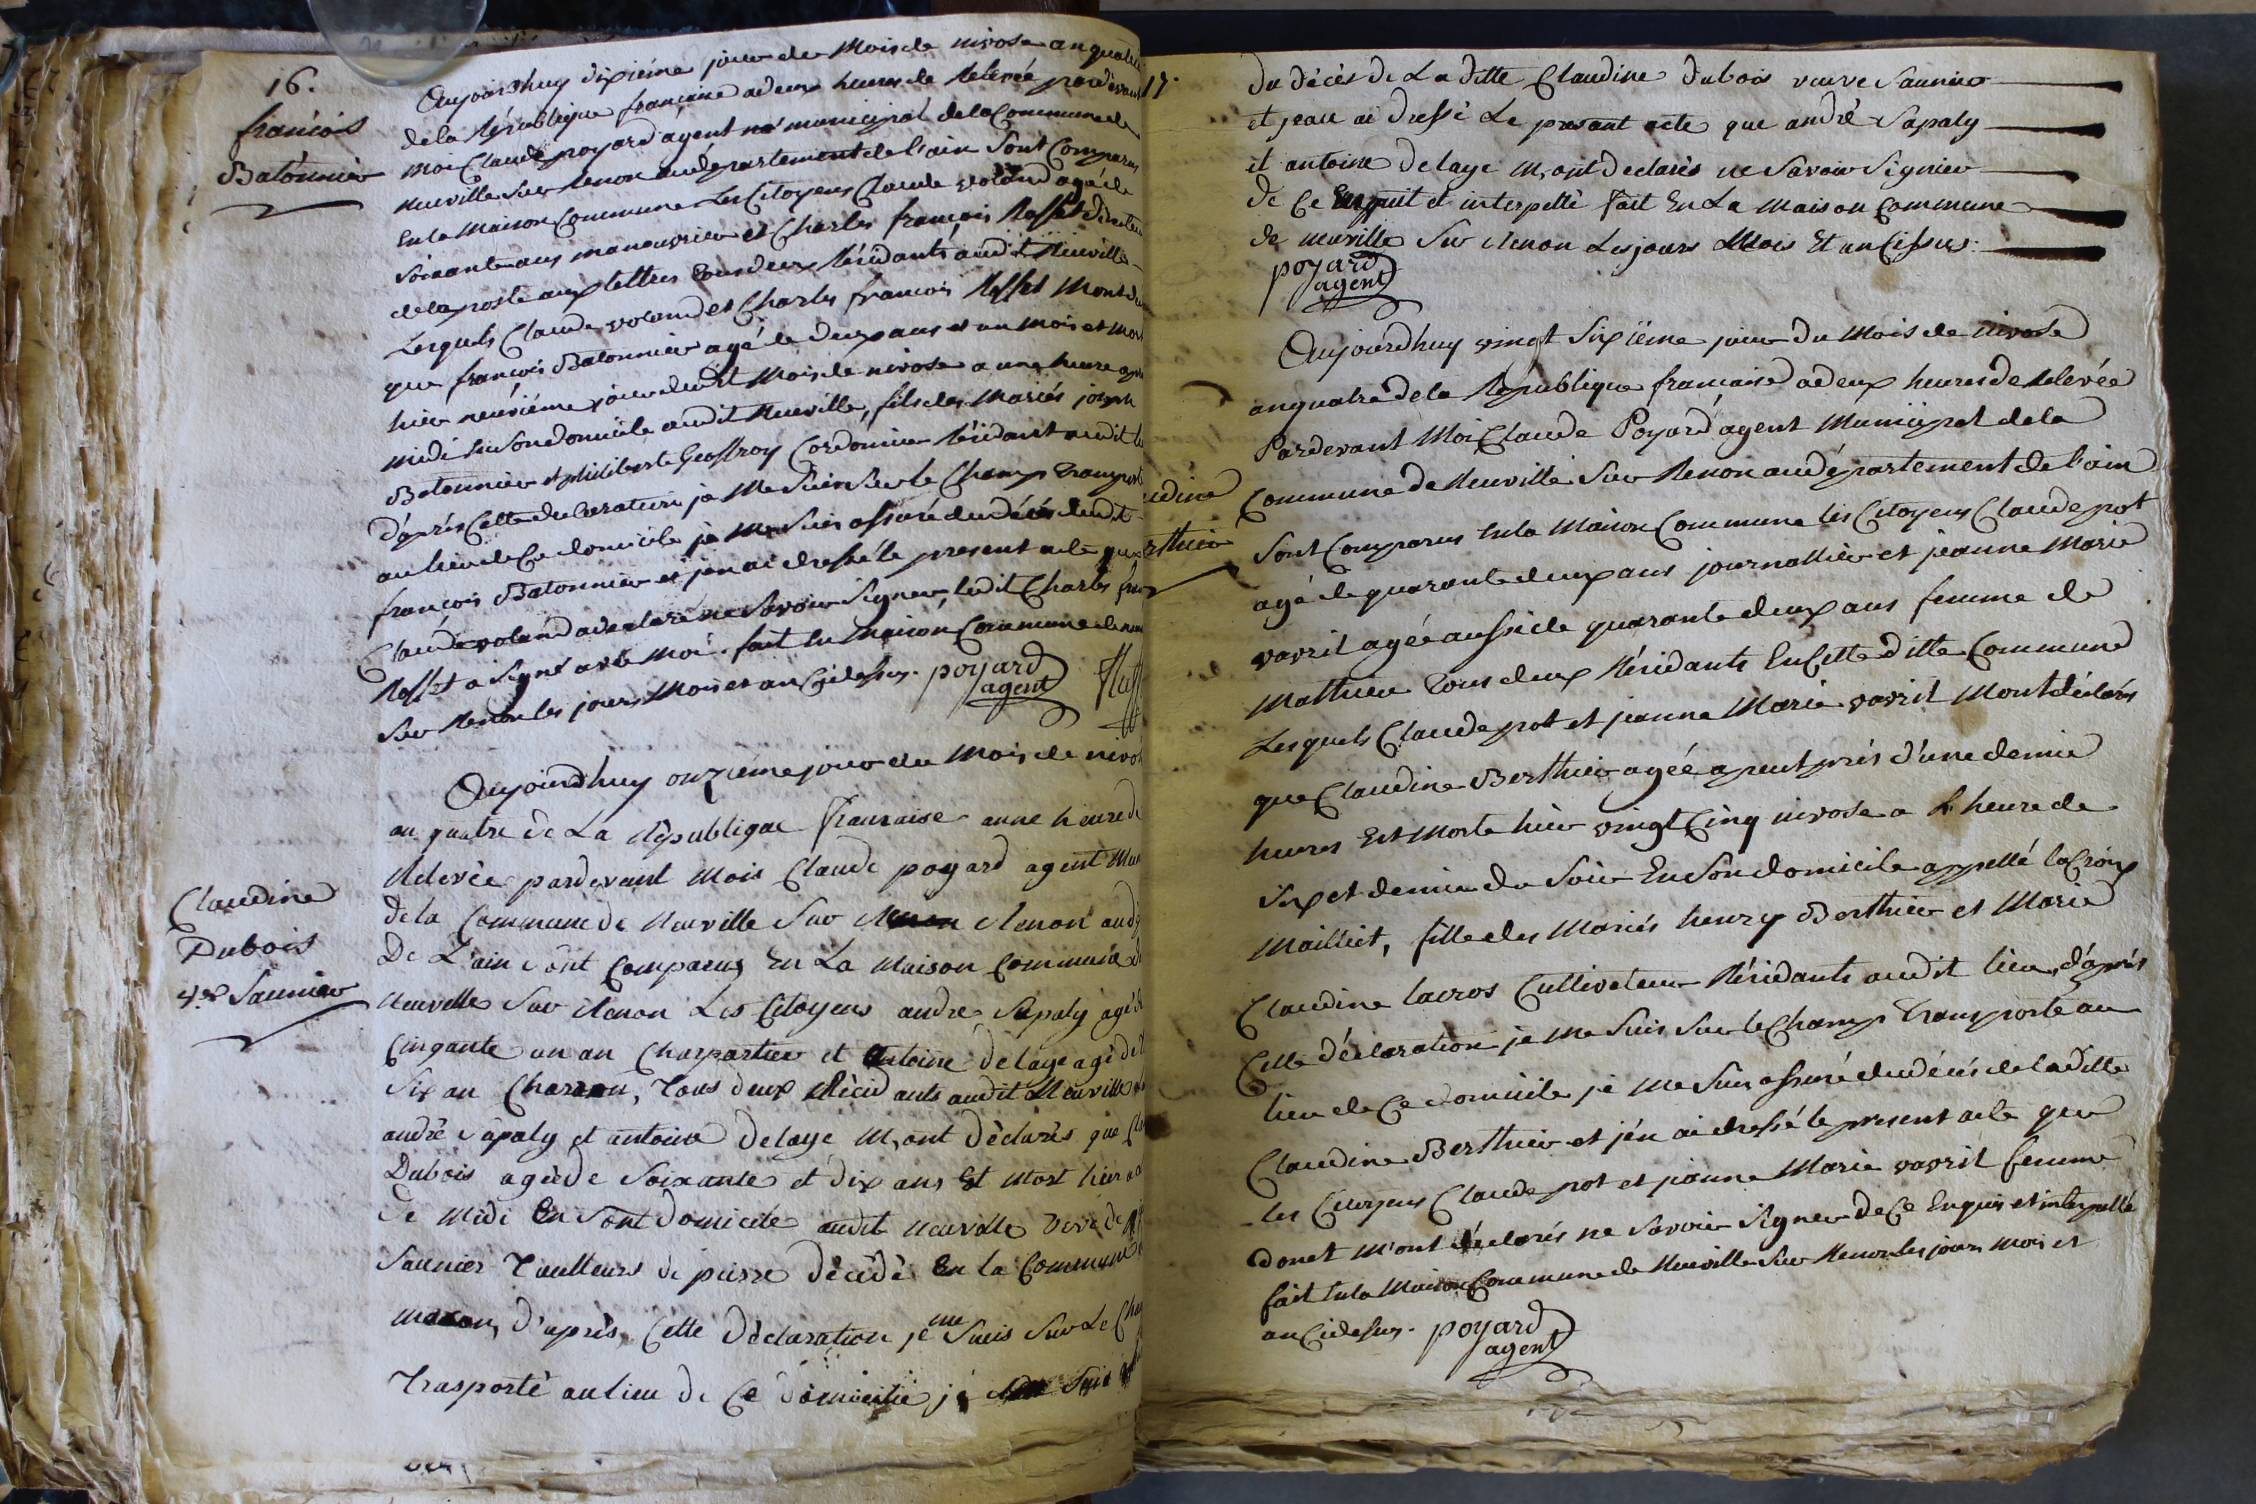 16.
françois
Batonnier
Aujourdhuy dixiéme jour du Mois de nivose an quatre
de la République française a deux heures de Relevée pardevant
moi Claude poyard agent municipal de la Commune de
Neuville sur Renon au département de l'ain Sont Comparus
En la Maison Commune Les Citoyens Claude voland agé de
Soixante ans manouvrier et Charles françois Roffet directeur
de la poste aux lettres tous deux Résidants audit Neuville
Lesquels Claude voland et Charles françois Roffet Mont
que françois Batonnier agé de deux ans et un mois et mort
hier neuviéme jour dudit Mois de nivose a une heure
midi En son domicile audit Neuville, fils des Mariés joseph
Batonnier et philiberte Geoffroy Cordonnier Résidant audit
d'après Cette declaration je Me Suis Sur le Champ transporté
au lieu de Ce domicile je Me Suis assuré du décés dudit
françois Batonnier et j'en ai dressé le present acte que
Claude voland a déclaré ne Savoir Signer, ledit Charles
Roffet a Signé avec Moi. fait En la Maison Commune de
Sur Renon les jours Mois et an Cidessus. poyard
agent
Claudine
Dubois
ve Saunier
Aujourdhuy onziéme jour du Mois de
an quatre de La République française aune heure de
Relevée pardevant Mois Claude poyard agent
de la Commune de Neuville Sur Renon
De L'ain sont Comparus En La Maison Commune
Neuville Sur Renon Les Citoyens andré Sapaly agé
Cinqante un an Charpantier et antoine delaye agé de
Six an Charron, Tous deux Résidants audit Neuville
andré Sapaly et antoine delaye M,ont déclarés que
Dubois agéé de Soixante et dix ans Est Mort hier
de Midi En Sont domicile audit Neuville veve de
Saunier Tailleurs de pierre décédé En la Commune
d'aprés, Cette déclaration je me Suis Sur Le
Trasporté au lieu de Ce domicile je Suis
17.
du décés de La ditte Claudine dubois veuve Saunier
et jean ai dressé Le presant acte que andré Sapaly
et antoine delaye M,ont declarés ne Savoir Signier
de Ce Enquit et interpellé fait En La Maison Commune
de neuville Sur Renon Les jours Mois Et an Cissus.
poyard
agent
Claudine
Berthier
Aujourdhuy vingt Sixiéme jour du Mois de nivose
an quatre de la République française a deux heures de Relevée
Pardevant Moi Claude Poyard agent Municipal de la
Commune de Neuville Sur Renon au département de l'ain
Sont Comparus En la Maison Commune les Citoyens Claude pot
agé de quarante deux ans journallier et jeanne Marie
vavril agée aussi de quarante deux ans femme de
Mathieu tous deux Résidants En Cette ditte Commune
Lesquels Claude pot et jeanne Marie vavril Mont déclarés
que Claudine Berthier agée apeut près d'une demie
heures Est Morte hier vingt Cinq nivose a L'heure de
Six et demie du Soir En Son domicile appellé la Croix
Mailliet, fille des Mariés henry Berthier et Marie
Claudine lacros Cultivateur Résidants audit lieu, d'après
Cette déclaration je Me Suis Sur le Champ transporté au
lieu de Ce domicile je Me Suis assuré du décés de laditte
Claudine Berthier et j'en ai dressé le present acte que
les Citoyens Claude pot et jeanne Marie vavril femme
donet M'ont déclarés ne Savoir Signer de Ce Enquis et interpellé
fait En la Maison Commune de Neuville Sur Renon les jours mois et
an Cidessus. poyard
agent